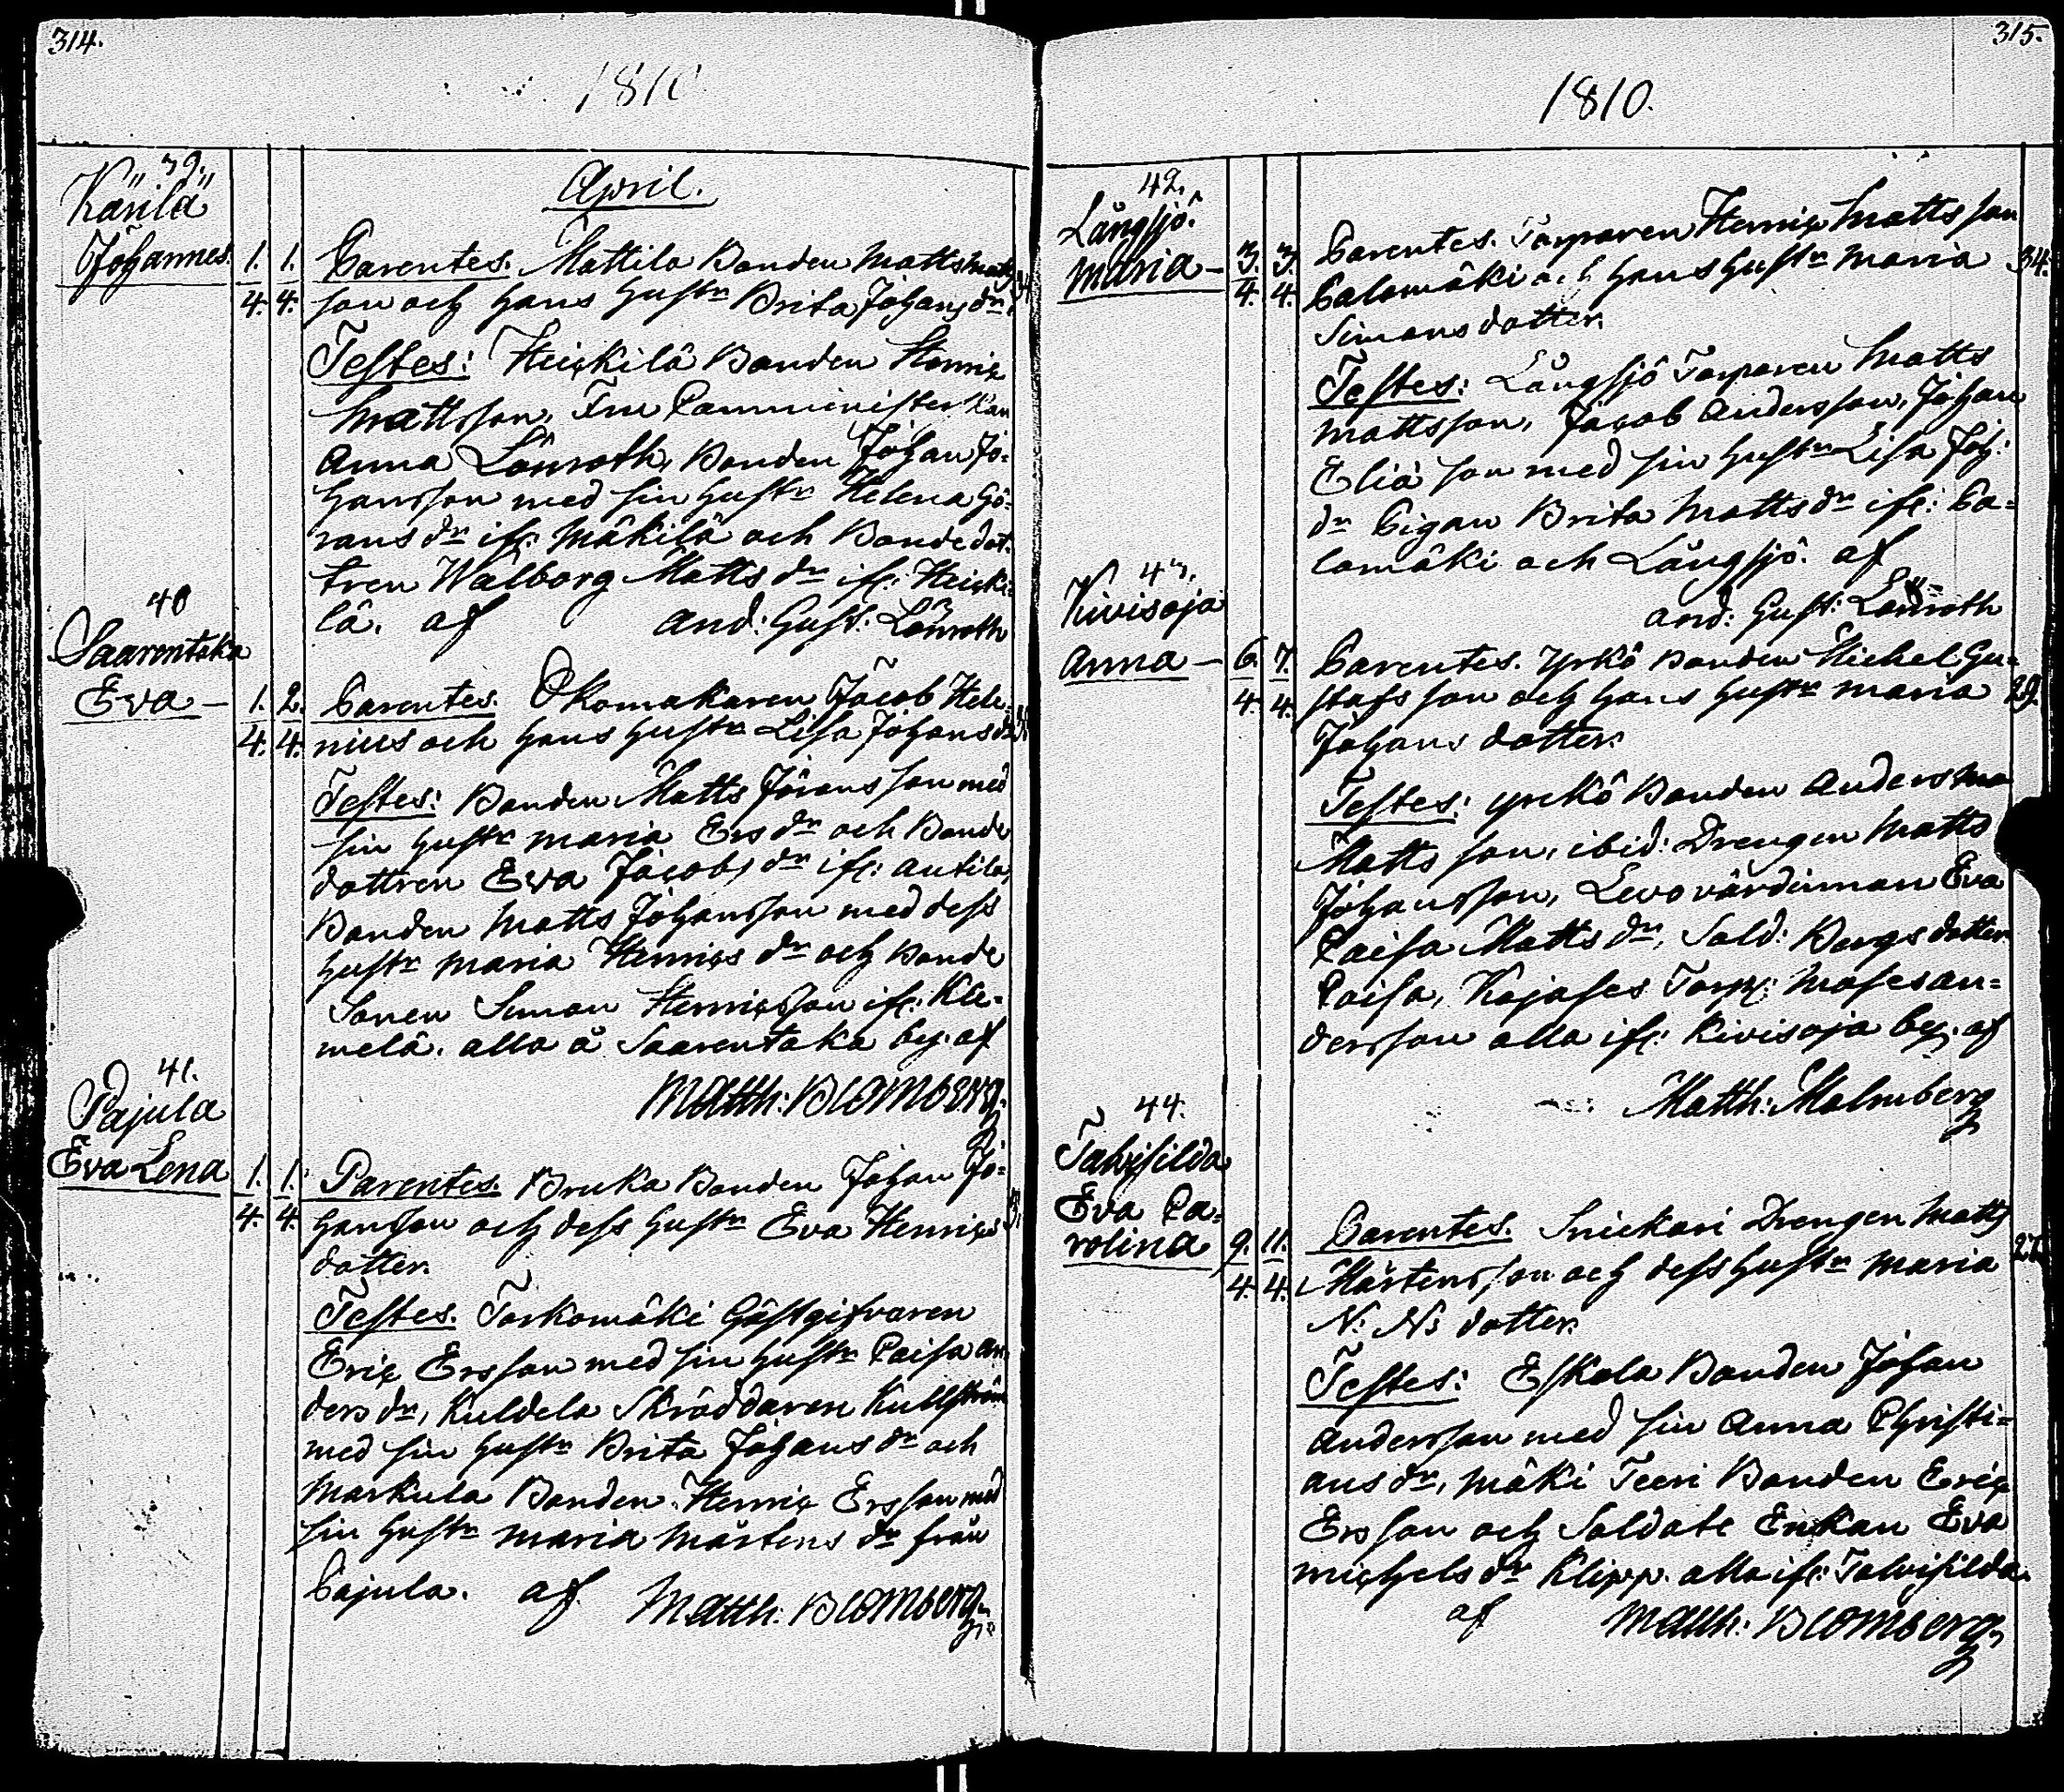 314.
1810
39.
Kärilä
Johannes.
1. 1.
4. 4.
April.
Parentes. Mattila Bonden Matts Matts
son och hans hustr Brita Johans dr
Testes: Heickilä Bonden Henric
Mattsson, Fru Camministerskan
Anna Lönroth, Bonden Johan Jo-
hansson med sin hustr Helena Gö-
rans dr ifr: Mäkilä och Bondedot-
tren Walborg Matts dr ifr: Heicki-
lä. af And: Gust: Lönroth
40
Saarentaka
Eva —
1. 2.
4. 4.
Parentes. Okomakaren Jacob Hele-
nius och hans hustr Lisa Johans dr
Testes: Bonden Matts Jöransson med
sin hustr Maria Ers dr och Bonde
dottren Eva Jacobs dr ifr: Antila,
Bonden Matts Johansson med dess
hustr Maria Henrics dr och Bonde
Sonen Simon Henricsson ifr: Kle-
melä. alla å Saarentaka by. af
Matth: Blomberg.
41.
Pajula
Eva Lena
1. 1.
4. 4.
Parentes. Bruka Bonden Johan Jo-
hansson och dess hustr Eva Henrics
dotter.
Testes. Torkomäki Gästgifvaren
Eric Ersson med sin hustr Caisa An-
ders dr, Kuldela Skräddaren Kullström
med sin hustr Brita Johans dr och
Markula Bonden Henric Ersson med
sin hustr Maria Mårtens dr från
Pajula. af Matth: Blomberg
315.
1810.
42.
Långsjö.
Maria —
3. 3.
4. 4.
Parentes. Torparen Henric Mattsson
Palomäki och hans hustr Maria 34.
Simons dotter.
Testes: Långsjö Torparen Matts
Mattsson, Jacob Andersson, Johan
Elia son med sin hustr Lisa Joh:
dr Pigan Brita Matts dr ifr: Pa-
lomäki och Långsjö. af
And: Gust: Lönroth
43.
Kivisoja
Anna —
6. 7.
4. 4.
Parentes. Yrkö Bonden Michel Gu-
stafs son och hans hustr Maria 29.
Johans dotter.
Testes: Yrkö Bonden Anders
Matts son, ibid: Drengen Matts
Johansson, Levovärdinnan Eva
Caisa Matts dr, Sold: Bergs dotter
Caisa, Kojases Torp: Moses An-
dersson alla ifr: Kivisoja by. af
Matth: Malmberg
44.
Talvisilda
Eva Ca-
rolina
9. 11.
4. 4.
Parentes. Snickari Drengen Matts
Mårtensson och dess hustr Maria 27.
N: N: dotter.
Testes: Eskola Bonden Johan
Andersson med sin Anna Christi-
ans dr, Mäki Teeri Bonden Eric
Ersson och Soldate Enkan Eva
Michels dr Klipp. alla ifr: Talvisilda.
af Matth: Blomberg